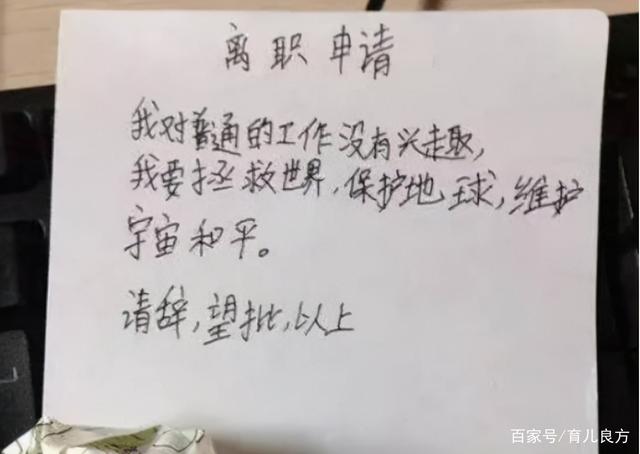 离职申请
我对普通的工作没有兴趣,
我要拯救世界,保护地球,维护
宇宙和平。
请辞,望批,以上
百家号/育儿良方